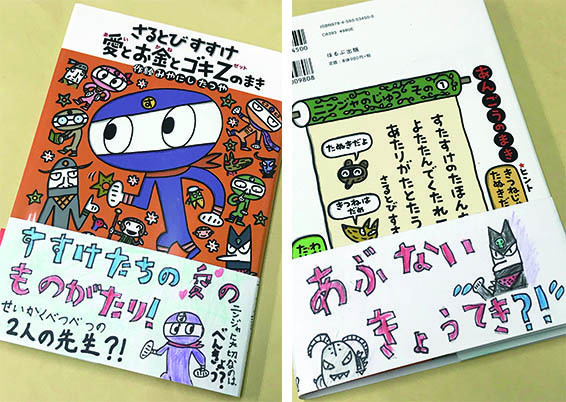 さるとびすすけ
愛とお金とゴキZのまき
ゼット
作・絵 みやにしたつや
す
すすけたちの愛の
ものがたり!
せいかくべつべつの
2人の先生?!
ニンジャに大切なのは
べんきょう?
4500
009808
ほるぷ出版
ニンジャのじゅつ その①
あんごうのまき
ヒント
きつねじ
たぬきだ
すたすけのたほん
よたたんでくたれ
あたりがたとたう
さるとびす
たぬきだよ
きつねは
だめ
たわ
あぶない
きょうてき?!